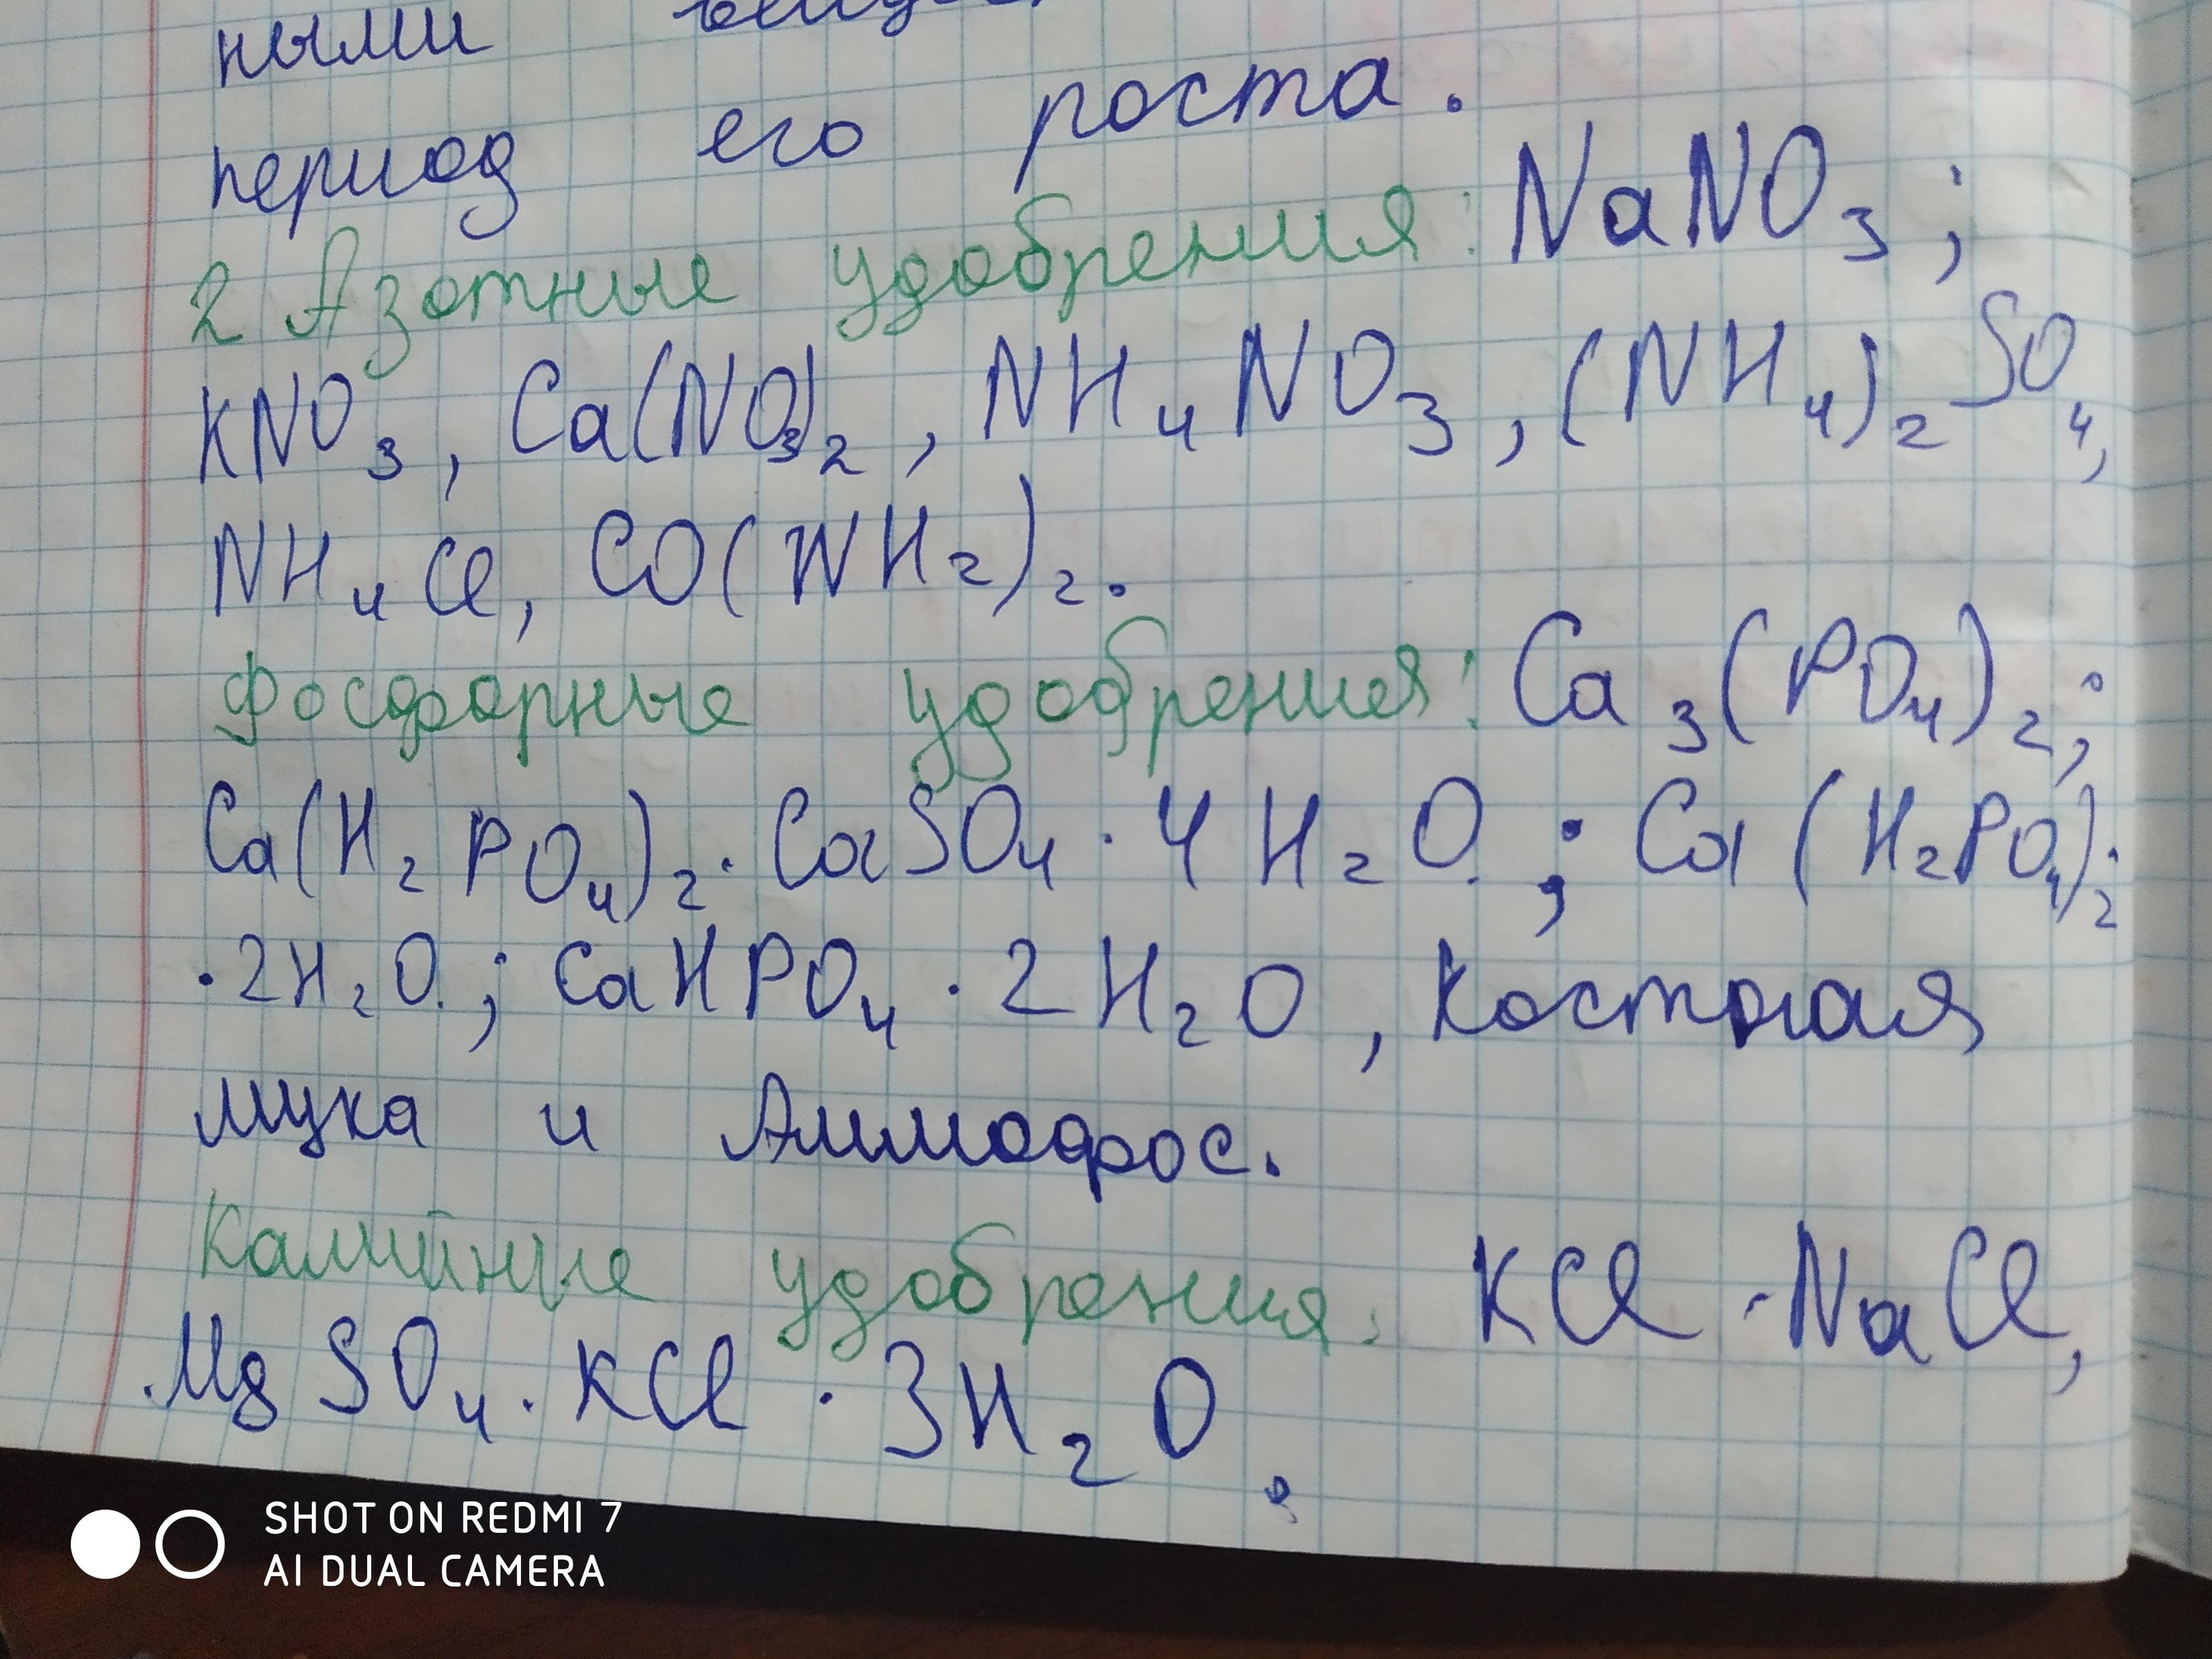 ными
период его роста.
2 Азотные удобрения: NaNO₃;
KNO₃, Ca(NO₃)₂, NH₄NO₃, (NH₄)₂SO₄,
NH₄Cl, CO(NH₂)₂.
Фосфорные удобрения: Ca₃(PO₄)₂;
Ca(H₂PO₄)₂·CaSO₄·4H₂O.; Ca(H₂PO₄)₂·
·2H₂O.; CaHPO₄·2H₂O, Костная
мука и Аммофос.
Калийные удобрения: KCl·NaCl,
MgSO₄·KCl·3H₂O,
SHOT ON REDMI 7
AI DUAL CAMERA